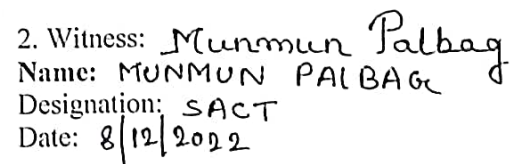 2. Witness: Munmun Palbag
Name: MUNMUN PALBAG
Designation: SACT
Date: 8/12/2022